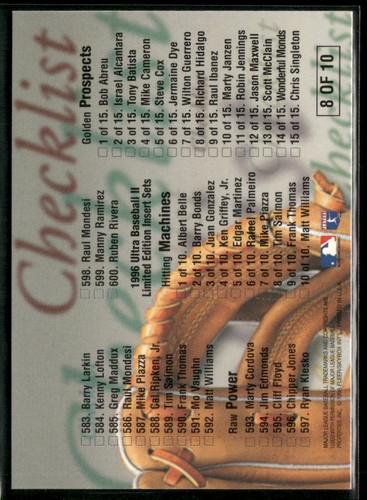 Checklist
583. Barry Larkin
584. Kenny Lofton
585. Greg Maddux
586. Raul Mondesi
587. Mike Piazza
588. Cal Ripken, Jr.
589. Tim Salmon
590. Frank Thomas
591. Mo Vaughn
592. Matt Williams
Raw Power
593. Marty Cordova
594. Jim Edmonds
595. Cliff Floyd
596. Chipper Jones
597. Ryan Klesko
598. Raul Mondesi
599. Manny Ramirez
600. Ruben Rivera
1996 Ultra Baseball II
Limited Edition Insert Sets
Hitting Machines
1 of 10. Albert Belle
2 of 10. Barry Bonds
3 of 10. Juan Gonzalez
4 of 10. Ken Griffey, Jr.
5 of 10. Edgar Martinez
6 of 10. Rafael Palmeiro
7 of 10. Mike Piazza
8 of 10. Tim Salmon
9 of 10. Frank Thomas
10 of 10. Matt Williams
Golden Prospects
1 of 15. Bob Abreu
2 of 15. Israel Alcantara
3 of 15. Tony Batista
4 of 15. Mike Cameron
5 of 15. Steve Cox
6 of 15. Jermaine Dye
7 of 15. Wilton Guerrero
8 of 15. Richard Hidalgo
9 of 15. Raul Ibanez
10 of 15. Marty Janzen
11 of 15. Robin Jennings
12 of 15. Jason Maxwell
13 of 15. Scott McClain
14 of 15. Wonderful Monds
15 of 15. Chris Singleton
8 OF 10